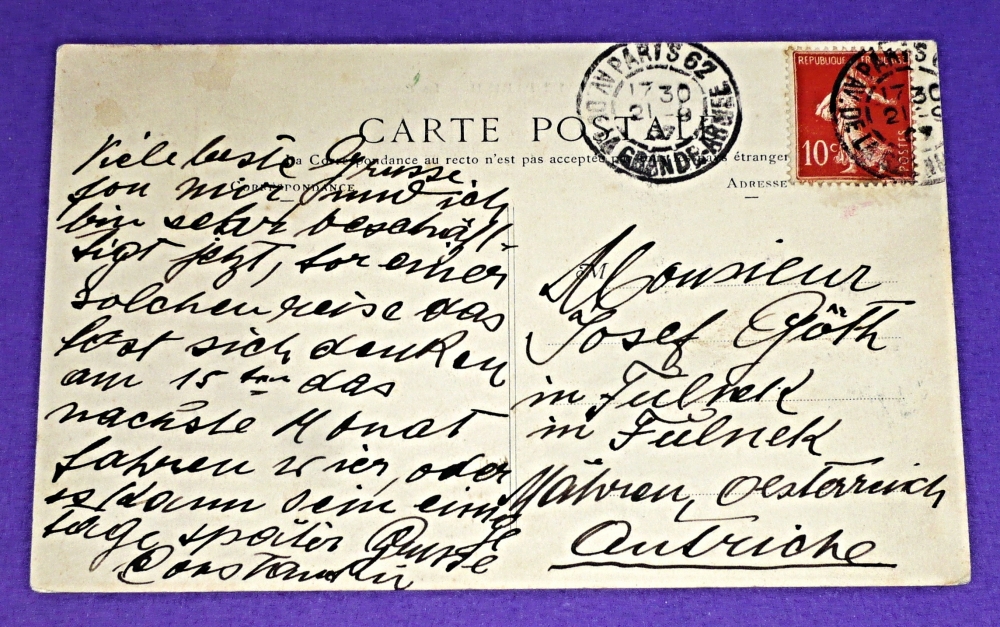 CARTE POSTALE
La Correspondance au recto n'est pas acceptée pays étranger
CORRESPONDANCE
ADRESSE
AV. DE LA GRANDE ARMÉE
PARIS 62
17 30
21-9
REPUBLIQUE FRANÇAISE
10c
POSTES
Viele beste Grusse
fon mir und ich
bin sehr beschäf-
tigt jetzt, for einer
solchen reise das
läst sich denken
am 15ten das
nächste Monat
fahren wier, oder
es kann sein einige
tage später Grusse
Constantin
M
Monsieur
Josef Göth
in Fulnek
in Fulnek
Mähren, Oesterreich
Autriche